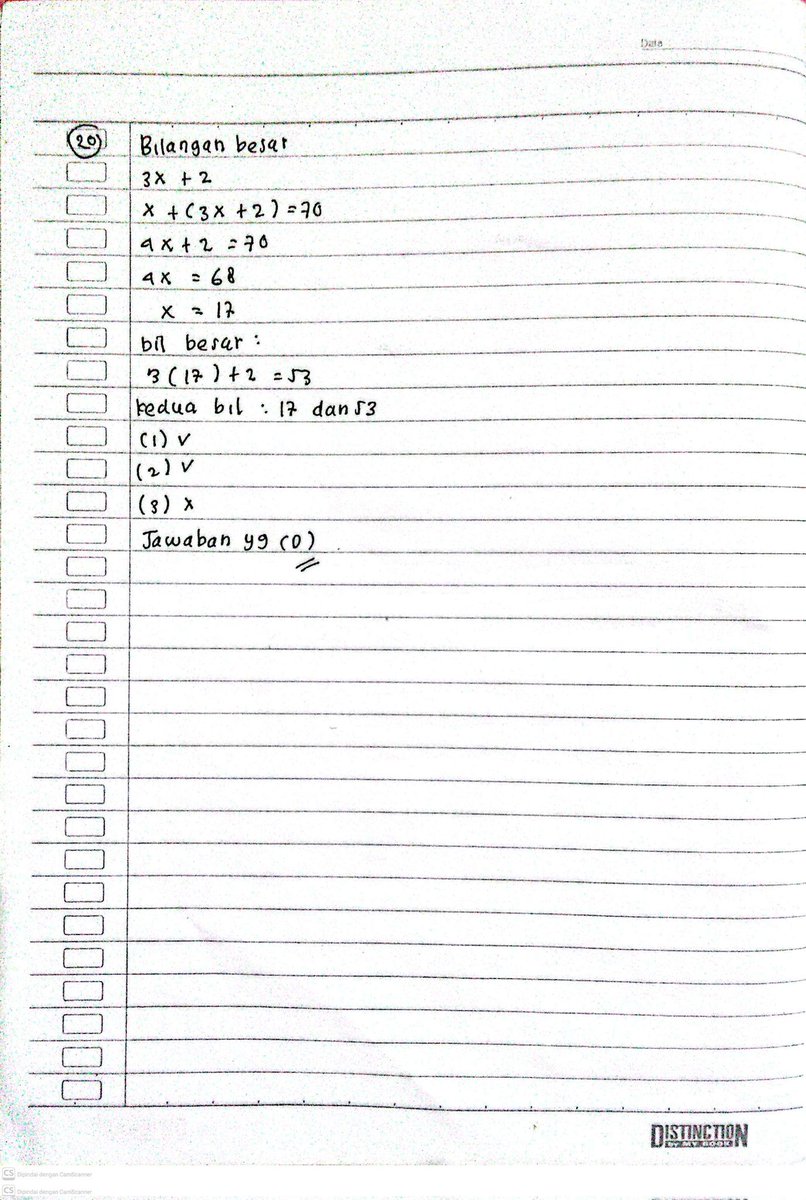 Date
20 Bilangan besar
3x + 2
x + (3x + 2) = 70
4x + 2 = 70
4x = 68
x = 17
bil besar :
3 (17) + 2 = 53
kedua bil : 17 dan 53
(1) v
(2) v
(3) x
Jawaban yg (D)
DISTINCTION
BY MY BOOK
CS Dipindai dengan CamScanner
CS Dipindai dengan CamScanner